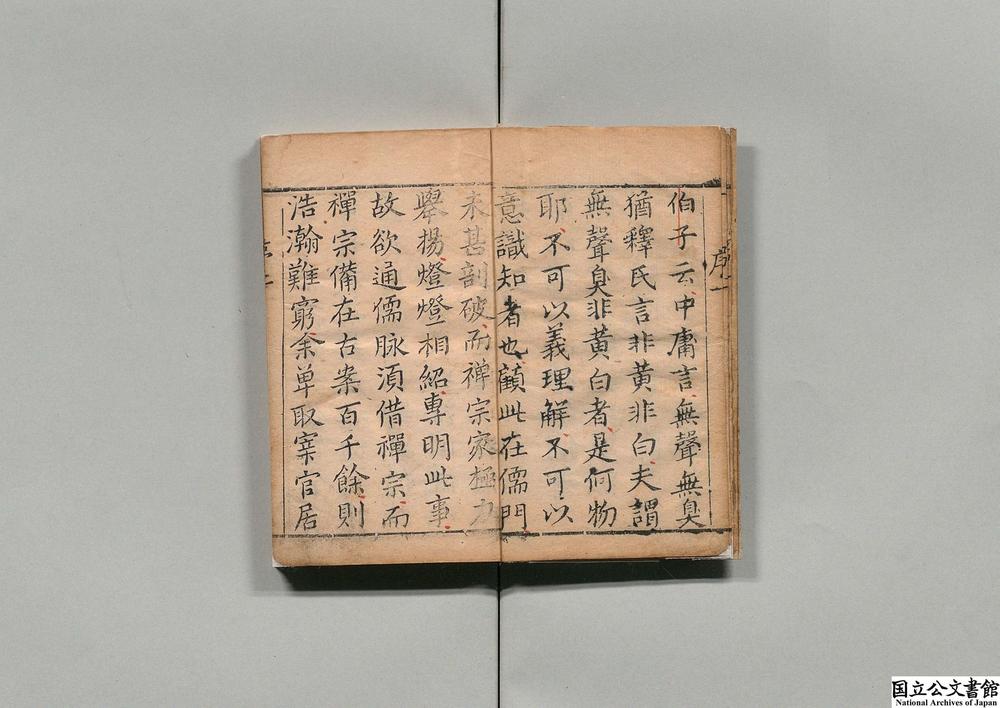 序一
伯子云中庸言無聲無臭
猶釋氏言非黄非白夫謂
無聲臭非黄白者是何物
耶不可以義理解不可以
意識知者也顧此在儒門
未甚剖破而禅宗家極力
舉揚燈燈相紹專明此事
故欲通儒脉湏借禪宗而
禪宗備在古案百千餘則
浩瀚難窮余单取寀官居
国立公文書館
National Archives of Japan